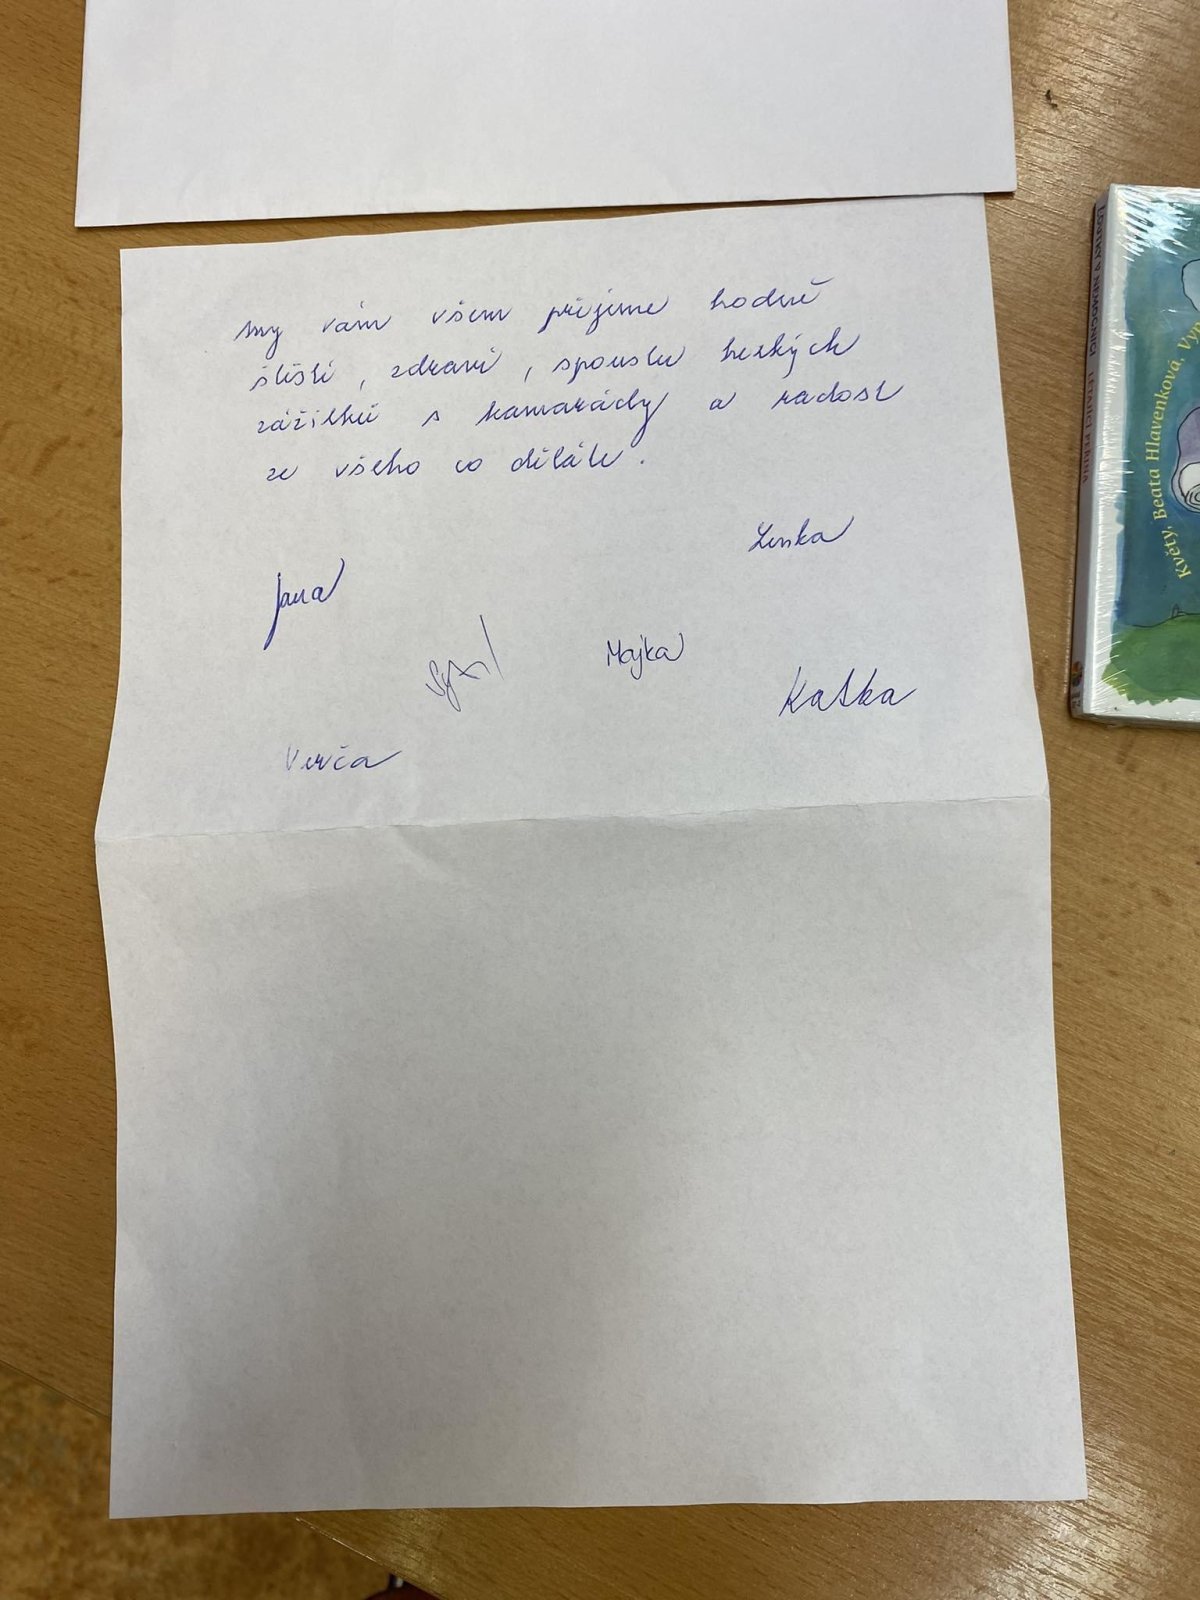 my vám všem přejeme hodně
štěstí, zdraví, spoustu hezkých
zážitků s kamarády a radost
ze všeho co děláte.
Lenka
Jana
Majka
Katka
Verča
LOUTKY V NEMOCNICI LÉTAJÍCÍ PEŘINA
Květy, Beata Hlavenková, Vyp